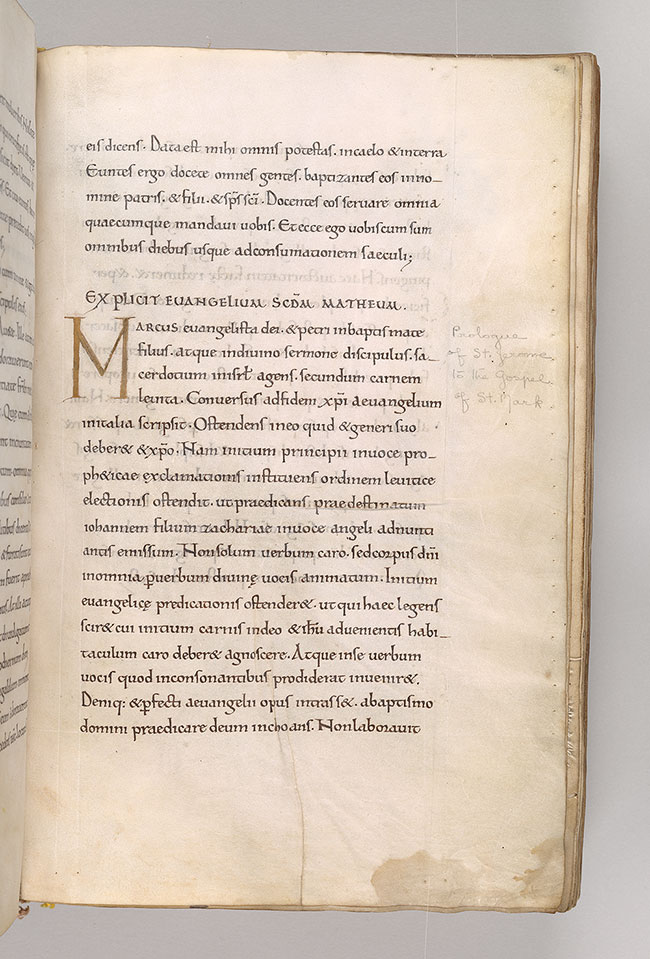 eis dicens· Data est mihi omnis potestas· incaelo & interra
Euntes ergo docete omnes gentes· baptizantes eos inno-
mine patris· & filii· & sp̄s sc̄i· Docentes eos seruare omnia
quaecumque mandaui uobis· Et ecce ego uobiscum sum
omnibus diebus usque adconsumationem saeculi;
EXPLICIT EUANGELIUM SCD̄M MATHEUM·
MARCUS euangelista dei· & petri inbaptismate
filius· atque indiuino sermone discipulus· sa-
cerdotium inisrł agens· secundum carnem
leuita· Conuersus adfidem xp̄i aeuangelium
initalia scripsit· Ostendens ineo quid & generi suo
deber& & xp̄o· Nam initium principii inuoce pro-
ph&icae exclamationis instituens ordinem leuiticę
electionis ostendit· ut praedicans praedestinatum
iohannem filium zachariae inuoce angeli adnunti
antis emissum· Nonsolum uerbum caro· sedcorpus dn̄i
inomnia p̄uerbum diuinę uocis animatum· Initium
euangelicę predicationis ostender&· ut qui haec legens
scir& cui initium carnis indeo & ih̄u aduenientis habi-
taculum caro deber& agnoscere· Atque inse uerbum
uocis quod inconsonantibus prodiderat inuenir&·
Deniq: & p̄fecti aeuangelii opus intrass&· abaptismo
domini praedicare deum inchoans· Nonlaborauit
Prologue
of St. Jerome
to the Gospel
of St. Mark